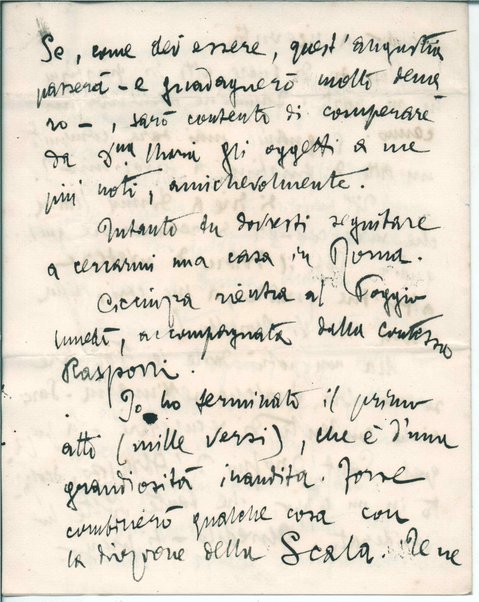 Se, come dev'essere, quest'angustia
passerà – e guadagnerò molto dena
ro –, sarò contento di comperare
da Maria gli oggetti a me
più noti, amichevolmente.
Intanto tu dovresti seguitare
a cercarmi una casa in Roma.
Cicciuzza rientra al Poggio
lunedì, accompagnata dalla contessa
Rasponi.
Io ho terminato il primo
atto (mille versi), che è d'una
grandiosità inaudita. Forse
combinerò qualche cosa con
la direzione della Scala. Te ne